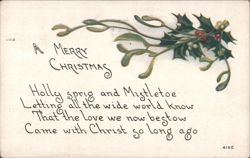 A Merry
Christmas
Holly sprig and Mistletoe
Letting all the wide world know
That the love we now bestow
Came with Christ so long ago